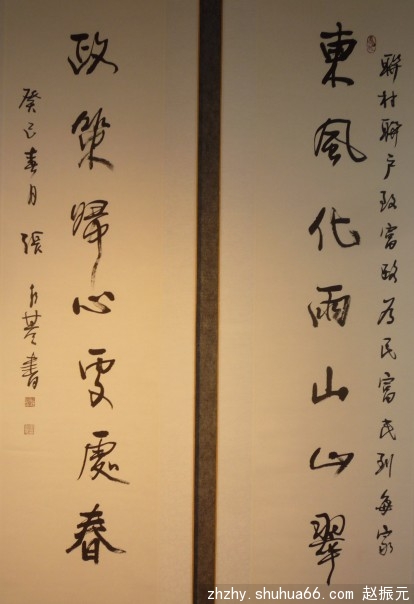 聯村聯户致富路為民富民到每家
東風化雨山山翠
政策歸心處處春
癸巳春月 張 書
zhzhy.shuhua66.com 赵振元